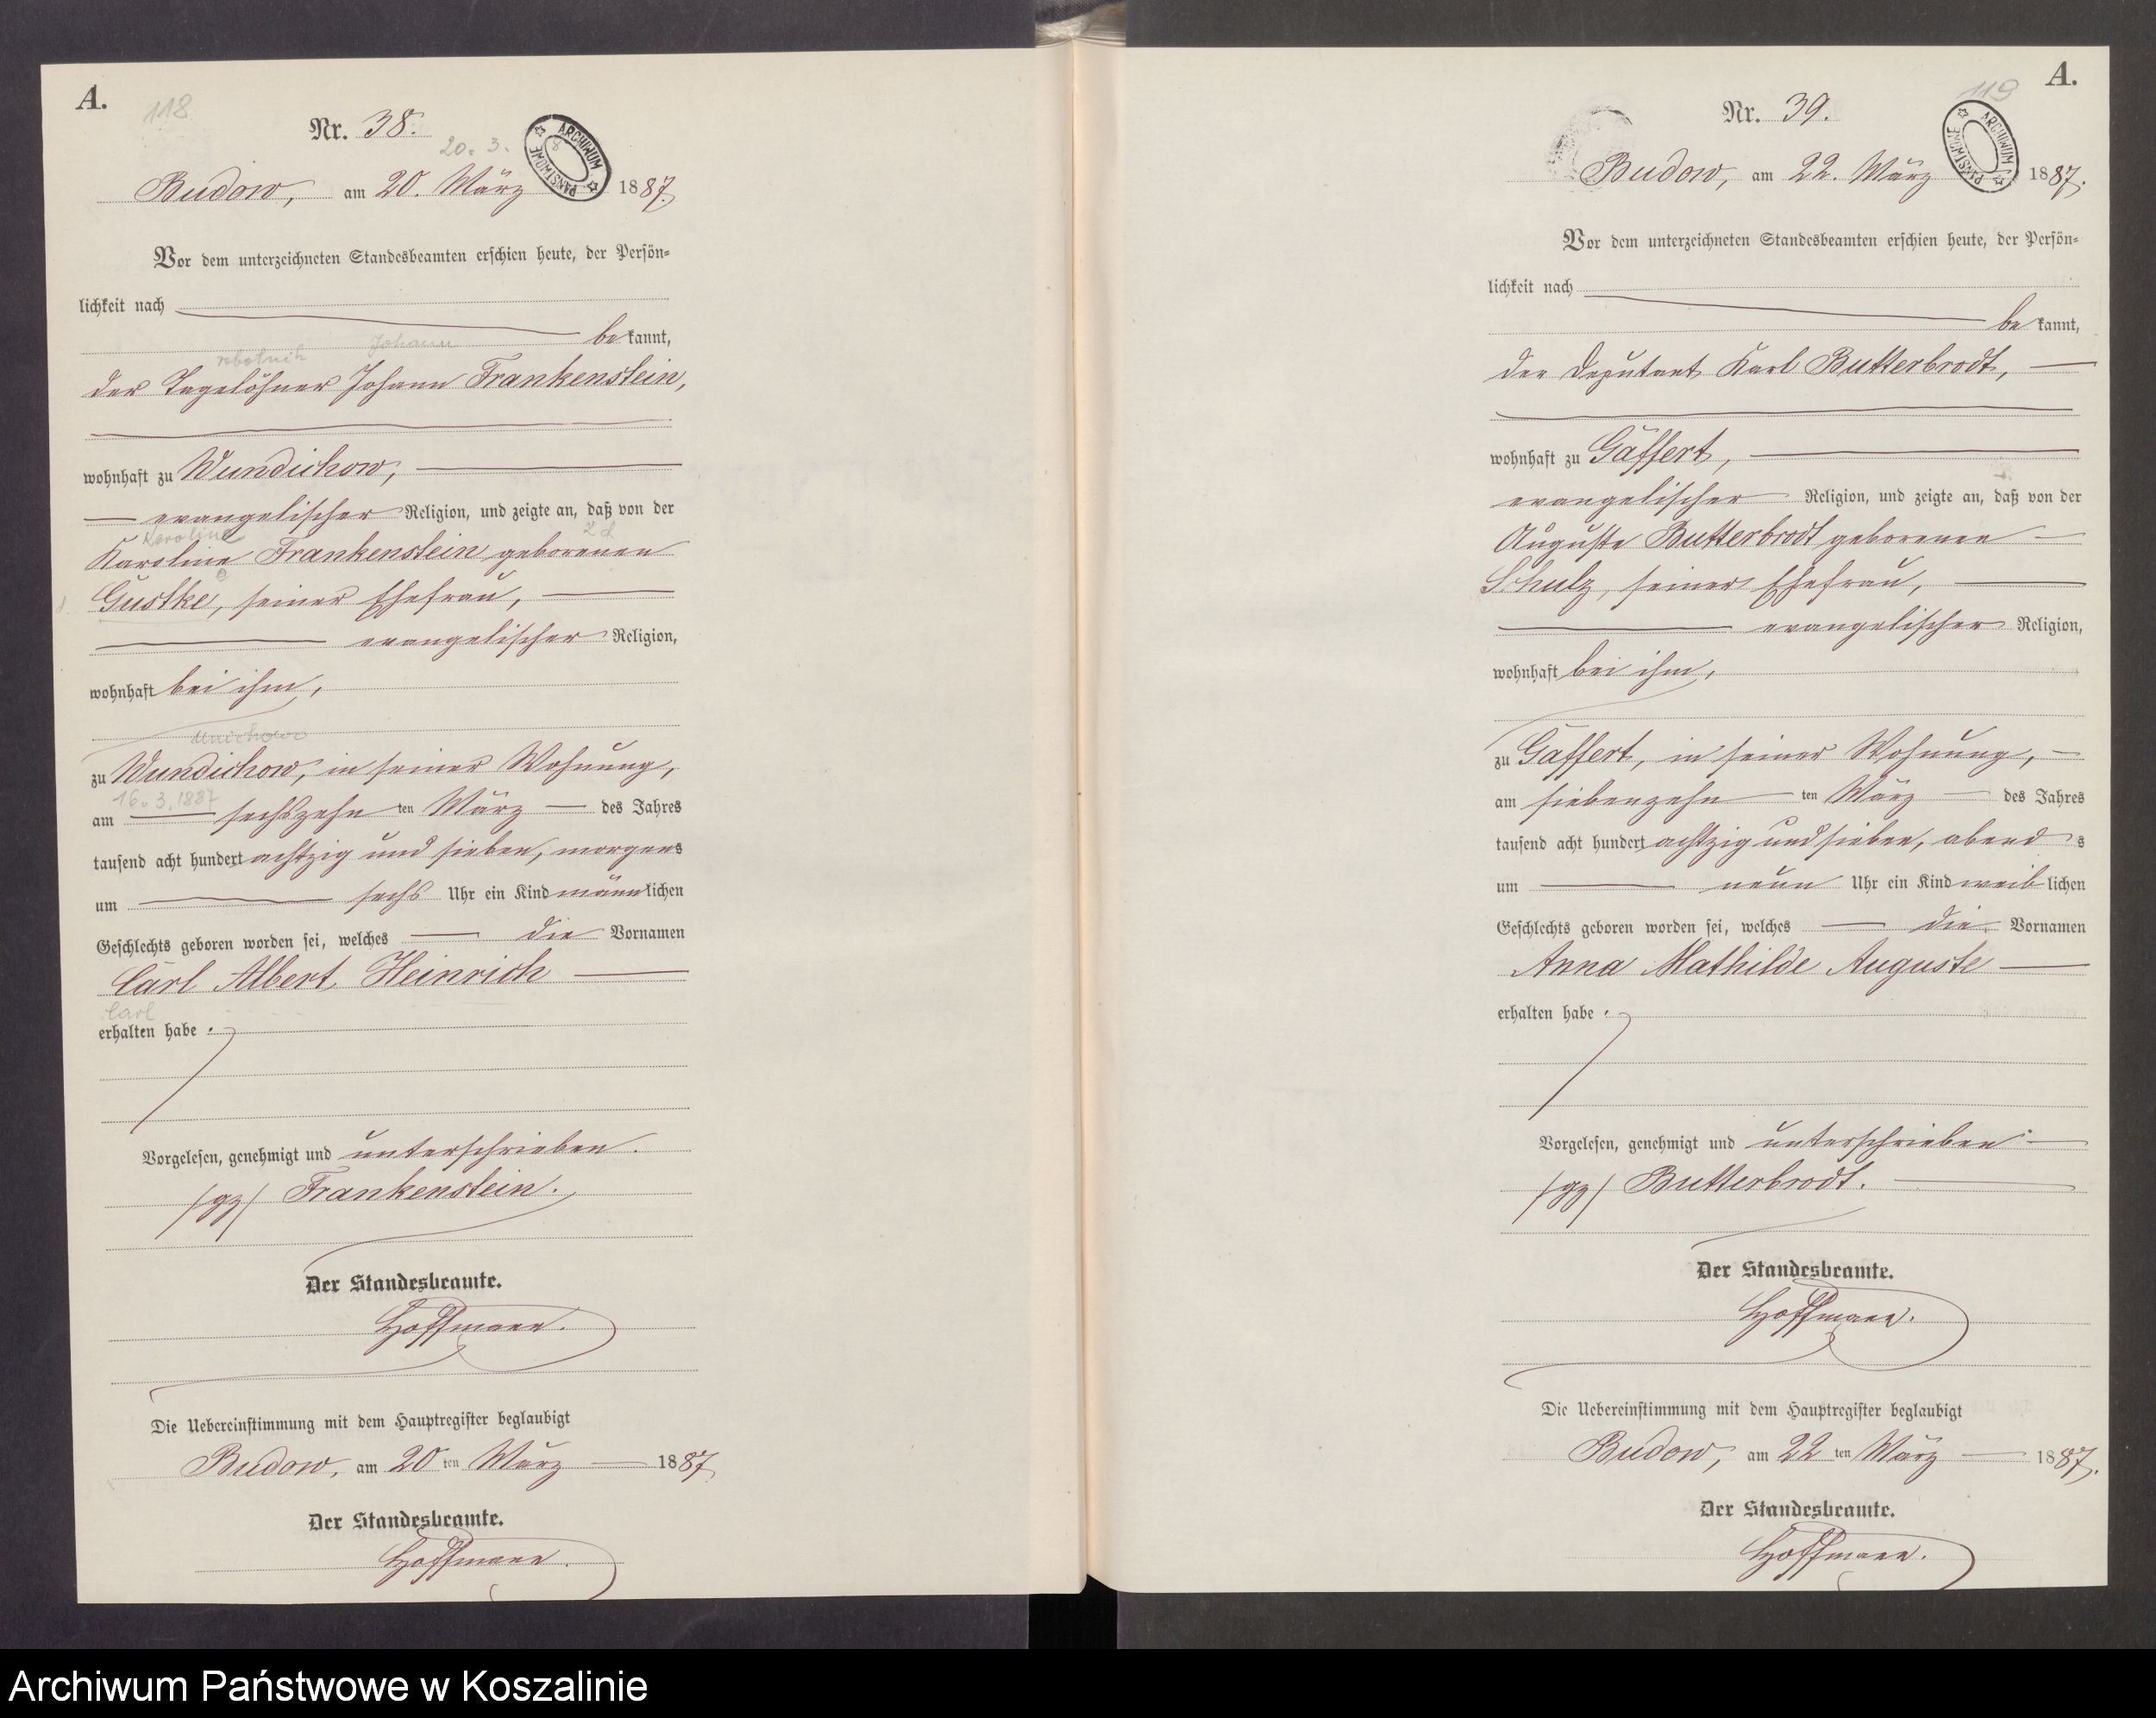 A.
118
Nr. 38.
20. 3.
ARCHIWUM PAŃSTWOWE
Budow, am 20. März 1887.
Vor dem unterzeichneten Standesbeamten erschien heute, der Persön-
lichkeit nach
bekannt,
robotnik Johann
der Tagelöhner Johann Frankenstein,
wohnhaft zu Wundichow,
evangelischer Religion, und zeigte an, daß von der
Karoline
Karoline Frankenstein geborenen
Gustke, seiner Ehefrau,
evangelischer Religion,
wohnhaft bei ihm,
Unichowo
zu Wundichow, in seiner Wohnung,
16. 3. 1887
am sechszehn ten März des Jahres
tausend acht hundert achtzig und sieben, morgens
um sechs Uhr ein Kind männlichen
Geschlechts geboren worden sei, welches die Vornamen
Carl Albert Heinrich
Carl
erhalten habe.
Vorgelesen, genehmigt und unterschrieben.
/gz/ Frankenstein.
Der Standesbeamte.
Hoffmann.
Die Uebereinstimmung mit dem Hauptregister beglaubigt
Budow, am 20 ten März 1887
Der Standesbeamte.
Hoffmann.
A.
119
Nr. 39.
ARCHIWUM PAŃSTWOWE
Budow, am 22. März 1887.
Vor dem unterzeichneten Standesbeamten erschien heute, der Persön-
lichkeit nach
bekannt,
der Deputant Karl Butterbrodt,
wohnhaft zu Gaffert,
evangelischer Religion, und zeigte an, daß von der
Auguste Butterbrodt geborenen
Schulz, seiner Ehefrau,
evangelischer Religion,
wohnhaft bei ihm,
zu Gaffert, in seiner Wohnung,
am siebenzehn ten März des Jahres
tausend acht hundert achtzig und sieben, abends
um neun Uhr ein Kind weiblichen
Geschlechts geboren worden sei, welches die Vornamen
Anna Mathilde Auguste
erhalten habe.
Vorgelesen, genehmigt und unterschrieben
/gz/ Butterbrodt.
Der Standesbeamte.
Hoffmann.
Die Uebereinstimmung mit dem Hauptregister beglaubigt
Budow, am 22 ten März 1887.
Der Standesbeamte.
Hoffmann.
Archiwum Państwowe w Koszalinie